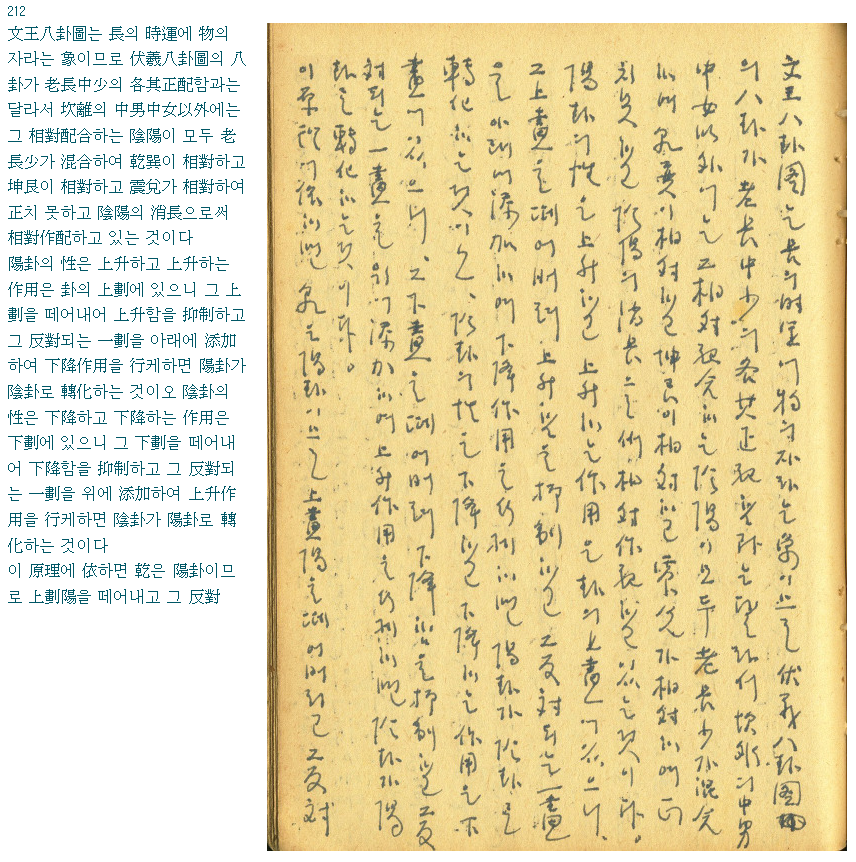 212
文王八卦圖는 長의 時運에 物의
자라는 象이므로 伏羲八卦圖의 八
卦가 老長中少의 各其正配함과는
달라서 坎離의 中男中女以外에는
그 相對配合하는 陰陽이 모두 老
長少가 混合하여 乾巽이 相對하고
坤艮이 相對하고 震兌가 相對하여
正치 못하고 陰陽의 消長으로써
相對作配하고 있는 것이다
陽卦의 性은 上升하고 上升하는
作用은 卦의 上劃에 있으니 그 上
劃을 떼어내어 上升함을 抑制하고
그 反對되는 一劃을 아래에 添加
하여 下降作用을 行케하면 陽卦가
陰卦로 轉化하는 것이오 陰卦의
性은 下降하고 下降하는 作用은
下劃에 있으니 그 下劃을 떼어내
어 下降함을 抑制하고 그 反對되
는 一劃을 위에 添加하여 上升作
用을 行케하면 陰卦가 陽卦로 轉
化하는 것이다
이 原理에 依하면 乾은 陽卦이므
로 上劃陽을 떼어내고 그 反對
文王八卦圖는 長의 時運에 物의 자라는 象이므로 伏羲八卦圖
의 八卦가 老長中少의 各其正配함과는 달라서 坎離의 中男
中女以外에는 그 相對配合하는 陰陽이 모두 老長少가 混合
하여 乾巽이 相對하고 坤艮이 相對하고 震兌가 相對하여 正
치 못하고 陰陽의 消長으로써 相對作配하고 있는 것이다。
陽卦의 性은 上升하고 上升하는 作用은 卦의 上畫에 있으니、
그 上畫을 떼어내어 上升함을 抑制하고 그 反對되는 一畫
을 아래에 添加하여 下降作用을 行케하면 陽卦가 陰卦로
轉化하는 것이오、陰卦의 性은 下降하고 下降하는 作用은 下
畫에 있으니、그 下畫을 떼어내어 下降함을 抑制하고 그 反
對되는 一畫을 위에 添加하여 上升作用을 行케하면 陰卦가 陽
卦로 轉化하는 것이다。
이 原理에 依하면 乾은 陽卦이므로 上畫陽을 떼어내고 그 反對